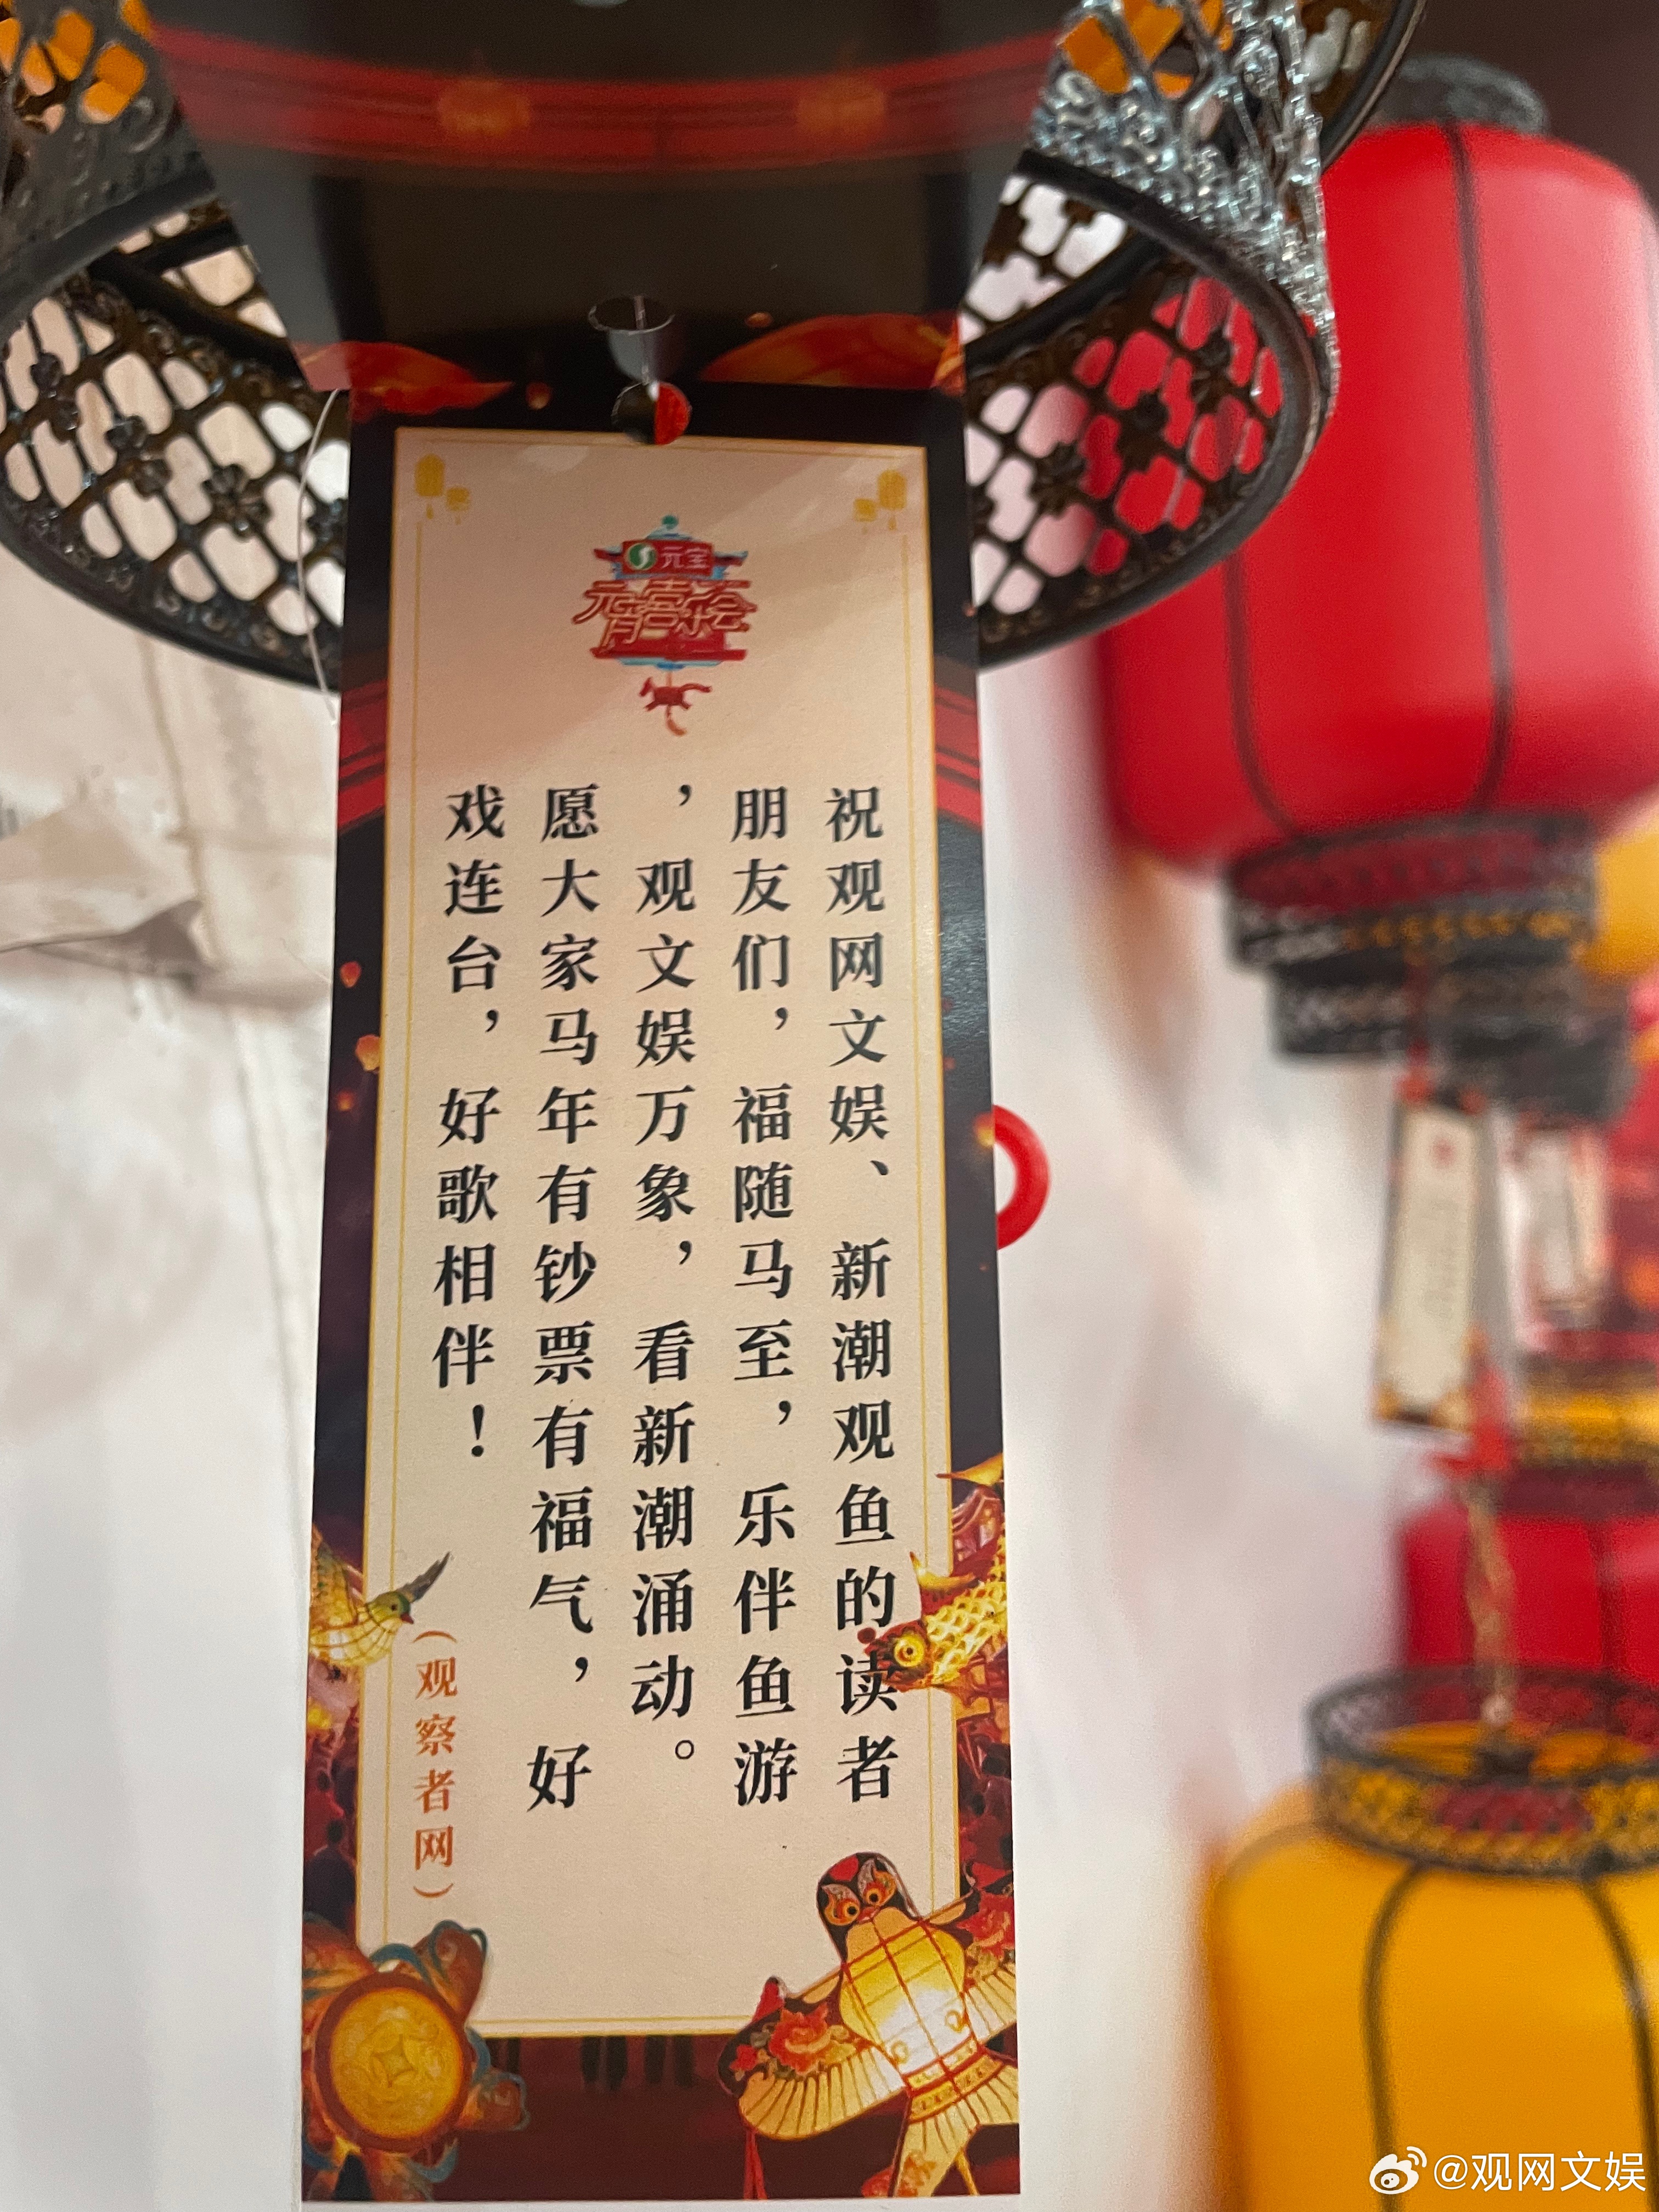 元宝
元宵喜乐会
祝观网文娱、新潮观鱼的读者
朋友们，福随马至，乐伴鱼游
，观文娱万象，看新潮涌动。
愿大家马年有钞票有福气，好
戏连台，好歌相伴！
（观察者网）
@观网文娱